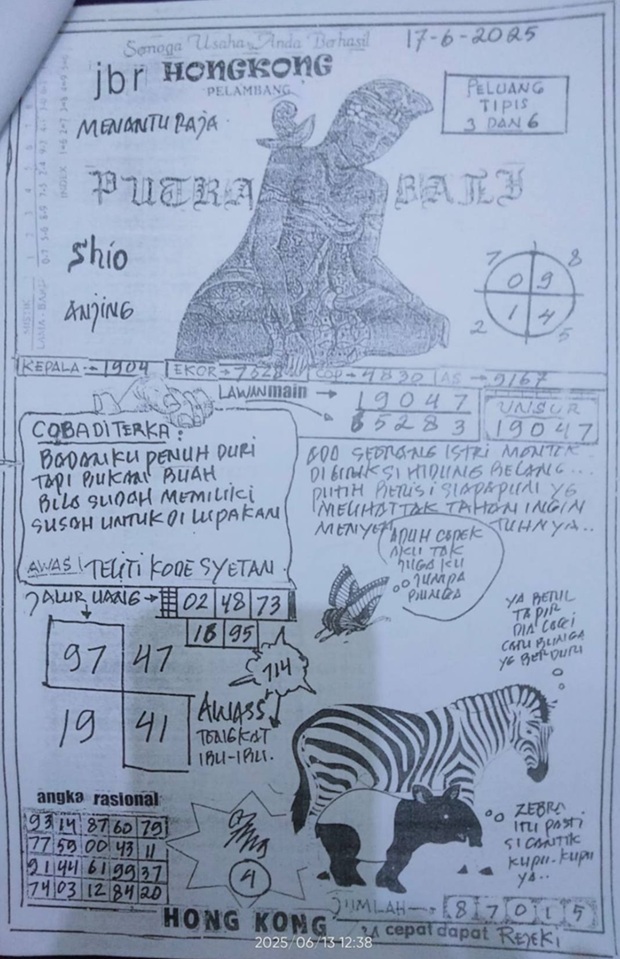 Semoga Usaha Anda Berhasil
17-6-2025
jbr HONGKONG
PELAMBANG
MENANTU RAJA
PELUANG
TIPIS
3 DAN 6
PUTRA BALI
Shio
ANJING
7 8
0 9
1 4
2 5
KEPALA → 1904 EKOR → 7328 COP → 4830 AS → 9167
LAWAN main → 19047
65283
UNSUR
19047
COBA DITERKA:
BADANKU PENUH DURI
TAPI BUKAN BUAH
BILA SUDAH MEMILIKI
SUSAH UNTUK DI LUPAKAN
AWAS! TELITI KODE SYETAN
ADO SEORANG ISTRI MONTOK
HIDUNG BELANG...
PUTIH BETIS SIAPAPUN YG
MELIHAT TAK TAHAN INGIN
ADUH CAPEK
AKU TAK
JUGA KU
JUMPA
BUNGA
JALUR UANG → 02 48 73
18 95
97 47
19 41
714
AWASS
TONGKAT
IBU-IBU.
YA BETUL
TAPIR
DIA CARI
BUNGA
YG BERDURI
angka rasional
93 14 87 60 79
77 59 00 43 11
91 44 61 99 37
74 03 12 84 20
4
ZEBRA
ITU PASTI
SI CANTIK
KUPU-KUPU
YA..
JUMLAH → 8 7 0 1 5
HONG KONG
cepat dapat REJEKI
2025/06/13 12:38